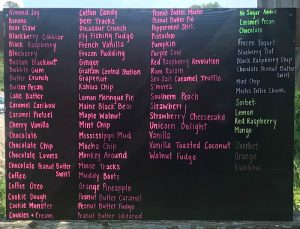 Almond Joy
Banana
Bear Claw
Blackberry
Black Raspberry
Blueberry
Boston Blackout
Bubble Gum
Butter Crunch
Butter Pecan
Cake Batter
Caramel Caribou
Caramel Pretzel
Cherry Vanilla
Chocolate
Chocolate Chip
Chocolate Lovers
Chocolate Peanut Butter Swirl
Coffee
Coffee Oreo
Cookie Dough
Cookie Monster
Cookies + Cream
Cotton Candy
Deer Tracks
Fly Fishing Fudge
French Vanilla
Frozen Pudding
Ginger
Grafton Central Station
Grapenut
Kahlua Chip
Lemon Meringue Pie
Maine Black Bear
Maple Walnut
Mint Chip
Mississippi Mud
Mocha Chip
Monkey Around
Moose Tracks
Muddy Boots
Orange Pineapple
Peanut Butter Caramel
Peanut Butter Fudge
Peanut Butter
Peanut Butter
Peanut Butter Pie
Peppermint Stick
Pistachio
Pumpkin
Purple Cow
Red Raspberry Revolution
Rum Raisin
Sea Salt Caramel Truffle
S'mores
Southern Peach
Strawberry
Strawberry Cheesecake
Unicorn Delight
Vanilla
Vanilla Toasted Coconut
Walnut Fudge
No Sugar Added
Caramel Pecan
Chocolate
Frozen Yogurt:
Blueberry
Black Raspberry Chip
Chocolate Peanut Butter Swirl
Mint Chip
Mocha Toffee Chunk
Sorbet:
Lemon
Red Raspberry
Mango
Sherbet
Orange
Rainbow